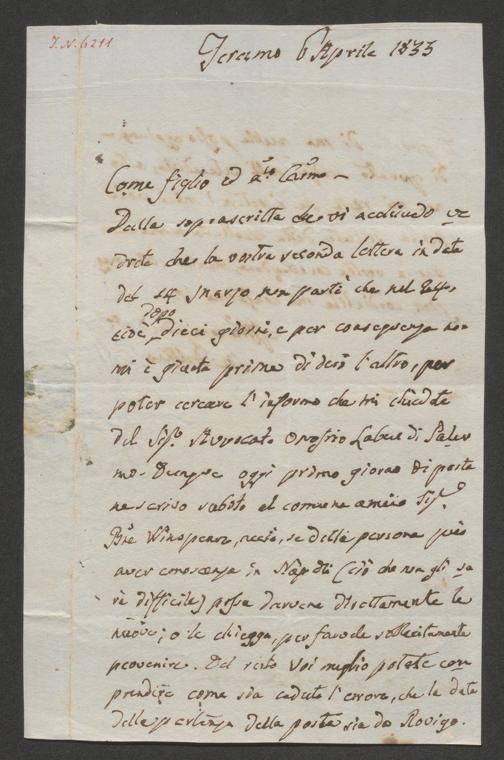 I. N. 6211
Teramo 6 Aprile 1833
Come figlio ed a.co Car.mo –
Dalla soprascritta che vi accludo ve
drete che la vostra seconda lettera in data
del 14 Marzo non partì che nel
cioè dopo dieci giorni, e per conseguenza non
mi è giunta prima di jeri l'altro, per
poter cercare l'informo che mi chiedete
del Sig.r Avvocato Onofrio Labue di Paler
mo. Dunque oggi primo giorno di posta
ne scrivo subito al comune amico Sig.r
B.ne Winspeare, acciò, se detta persona può
aver conoscenza in Napoli (ciò che non gli sa
rà difficile) possa darvene direttamente le
nuove; o le chiegga, per farvele sollecitamente
pervenire. Del resto voi meglio potete com
prendere come sia caduto l'errore, che la data
della partenza della posta sia da Rovigo.